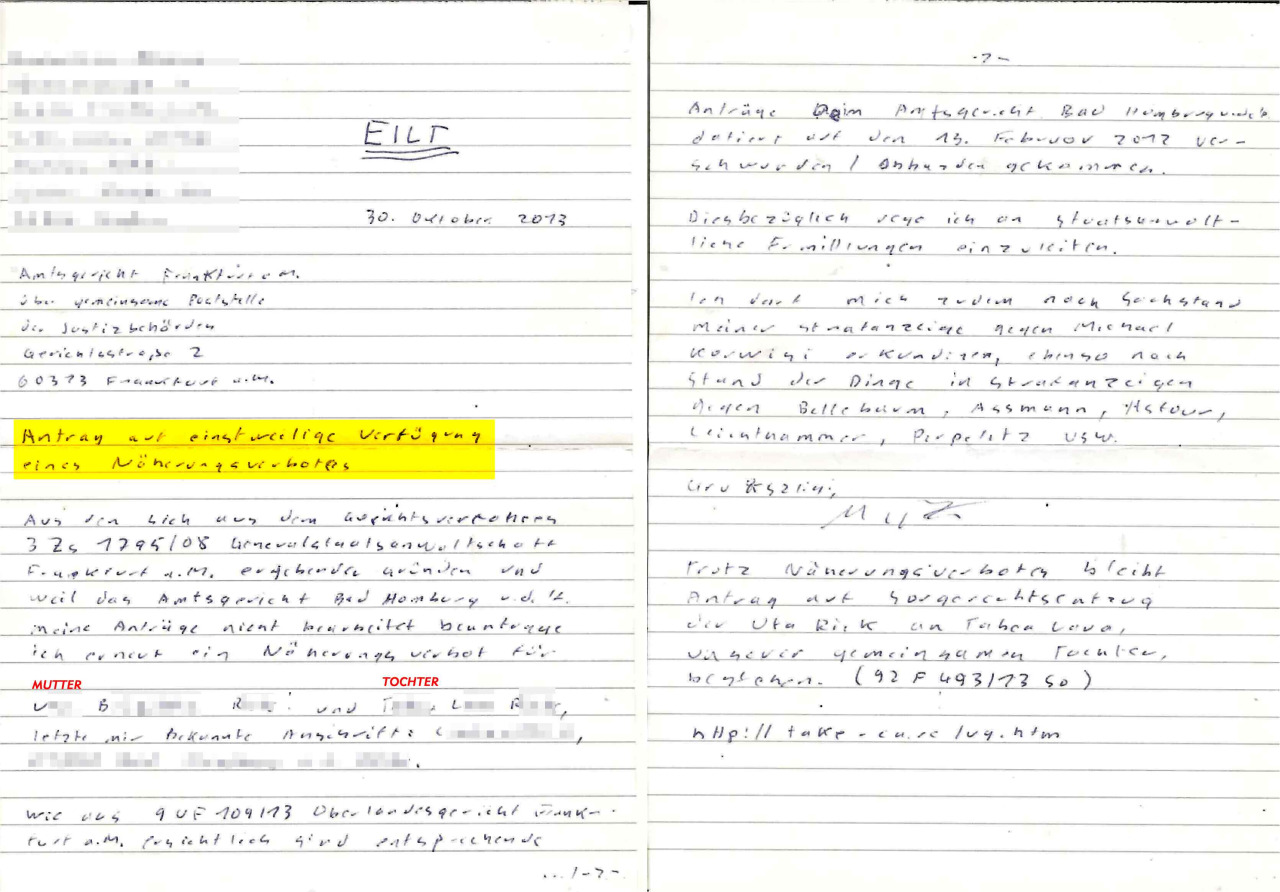 EILT
30. Oktober 2013
Amtsgericht Frankfurt a.M.
über gemeinsame Poststelle
der Justizbehörden
Gerichtsstraße 2
60313 Frankfurt a.M.
Antrag auf einstweilige Verfügung
eines Näherungsverbotes
Aus den sich aus dem
3 Zs 1795/08 Generalstaatsanwaltschaft
Frankfurt a.M. ergebende Gründen und
weil das Amtsgericht Bad Homburg v.d.H.
meine Anträge nicht bearbeitet beantrage
ich erneut ein Näherungsverbot für
MUTTER TOCHTER
und
letzte mir bekannte Anschrift:
Wie aus 9 UF 109/13 Oberlandesgericht Frank-
furt a.M. ersichtlich sind entsprechende
...1-2-
-2-
Anträge beim Amtsgericht Bad Homburg v.d.H.
datiert auf den 13. Februar 2012 ver-
schwunden / abhanden gekommen.
Diesbezüglich rege ich an staatsanwalt-
liche Ermittlungen einzuleiten.
Ich darf mich zudem nach Sachstand
meiner Strafanzeige gegen Michael
Korwisi erkundigen, ebenso nach
Stand der Dinge in Strafanzeigen
gegen Bellebaum, Assmann,
usw.
Trotz Näherungsverbotes bleibt
Antrag auf Sorgerechtsentzug
der Uta Rick an Tabea Lara,
unserer gemeinsamen Tochter,
bestehen. (92 F 493/13 SO)